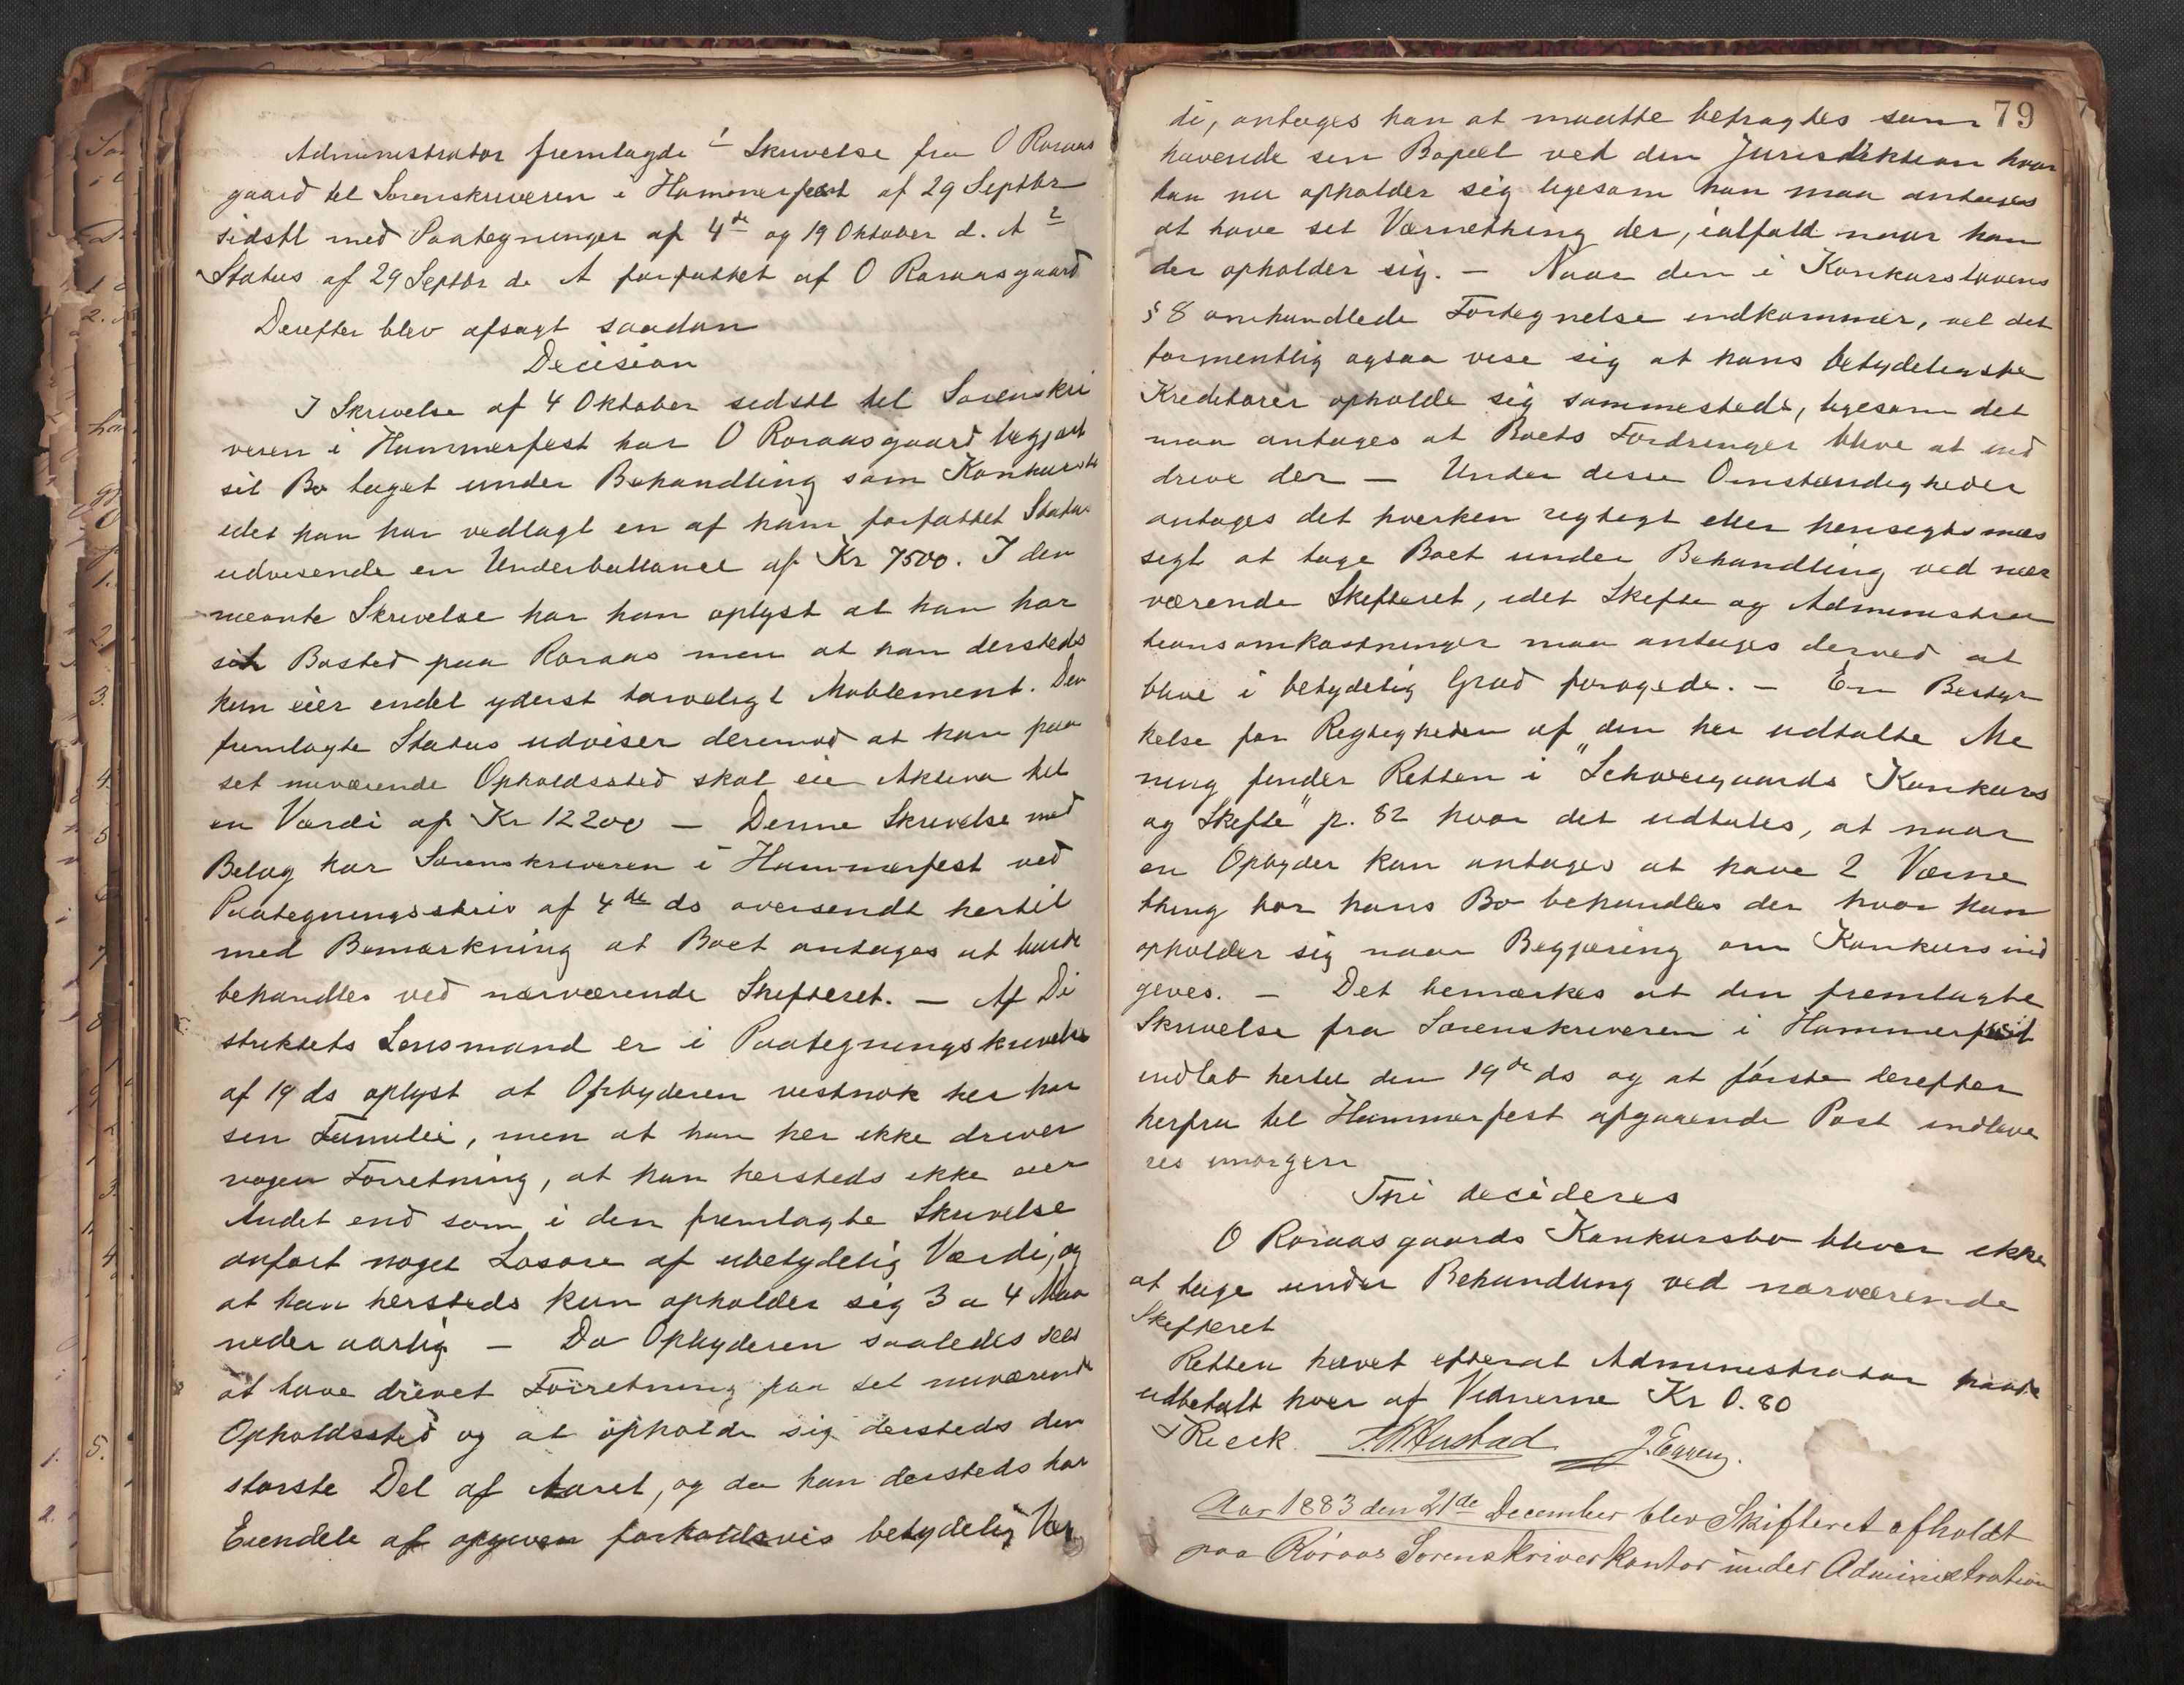 Administrator fremlagde 1 Skrivelse fra O Røraas
gaard til Sorenskriveren i Hammerfest af 29 Septbr
sidstl med Paategninger af 4de og 19 Oktober d. A 2
Status af 29 Septbr d. A forfattet af O Røraasgaard
Derefter blev afsagt saadan
Decision
I Skrivelse af 4 Oktober sidstl til Sorenskri
veren i Hammerfest har O Røraasgaard begjært
sit Bo taget under Behandling som Konkursbo
idet han har vedlagt en af ham forfattet Status
udvisende en Underballance af Kr 7500. I den
nævnte Skrivelse har han oplyst at han har
sit Bosted paa Røraas men at han dersteds
kun eier endel yderst tarveligt Møblement. Den
fremlagte Status udviser derimod at han paa
sit nuværende Opholdssted skal eie Aktiva til
en Værdi af Kr 12200 — Denne Skrivelse med
Belag har Sorenskriveren i Hammerfest ved
Paategningsskriv af 4de ds oversendt hertil
med Bemærkning at Boet antages at burde
behandles ved nærværende Skifteret. — Af Di
striktets Lensmand er i Paategningsskrivelse
af 19 ds oplyst at Opbyderen vistnok her har
sin Familie, men at han her ikke driver
nogen Forretning, at han hersteds ikke eier
Andet end som i den fremlagte Skrivelse
anført noget Løsøre af ubetydelig Værdi, og
at han hersteds kun opholder sig 3 a 4 Maa
neder aarlig — Da Opbyderen saaledes sees
at have drevet Forretning paa sit nuværende
Opholdssted og at opholde sig dersteds den
største Del af Aaret, og da han dersteds har
Eiendele af opgiven forholdsvis betydelig Vær
79
di, antages han at maatte betragtes som
havende sin Bopæl ved den Jurisdiktion hvor
han nu opholder sig ligesom han maa antages
at have sit Værnething der, ialfald naar han
der opholder sig. — Naar den i Konkurslovens
§ 8 omhandlede Fortegnelse indkommer, vil det
formentlig ogsaa vise sig at hans betydeligste
Kreditorer opholde sig sammesteds, ligesom det
maa antages at Boets Fordringer blive at ind
drive der — Under disse Omstændigheder
antages det hverken rigtigt eller hensigtsmæs
sigt at tage Boet under Behandling ved nær
værende Skifteret, idet Skifte og Administra
tionsomkostninger maa antages derved at
blive i betydelig Grad forøgede. — En Bestyr
kelse for Rigtigheden af den her udtalte Me
ning finder Retten i "Schweigaards Konkurs
og Skifte" p. 82 hvor det udtales, at naar
en Opbyder kan antages at have 2 Værne
thing bør hans Bo behandles der hvor han
opholder sig naar Begjæring om Konkurs ind
gives. — Det bemærkes at den fremlagte
Skrivelse fra Sorenskriveren i Hammerfest
indløb hertil den 19de ds og at første derefter
herfra til Hammerfest afgaaende Post indleve
res imorgen
Thi decideres
O Røraasgaards Konkursbo bliver ikke
at tage under Behandling ved nærværende
Skifteret
Retten hævet efterat Administrator havde
udbetalt hver af Vidnerne Kr 0.80
Rieck. Hustad J. Eggen.
Aar 1883 den 21de December blev Skifteret afholdt
paa Røraas Sorenskriverkontor under Administration